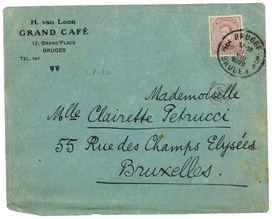 H. van Loon
GRAND CAFÉ
12, GRAND'PLACE
BRUGES
TÉL. 197
BRUGGE
BRUGES
Mademoiselle
Mlle Clairette Petrucci
55 Rue des Champs Elysées
Bruxelles.